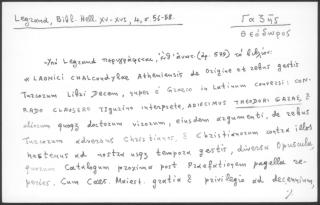 Legrand, Bibl. Hell. XV-XVI, 4, σ. 56-58.
Γαζῆς
Θεόδωρος
Ὑπὸ Legrand περιγράφεται, ἔνθ' ἀνωτ. (ἀρ. 578) τὸ βιβλίον:
« LAONICI CHALCONDYLAE Atheniensis de Origine et rebus gestis
Turcorum Libri Decem, nuper è Graeco in Latinum conversi: CON-
RADO CLAUSERO Tigurino interprete, ADIECIMUS THEODORI GAZAE, &
aliorum quoque doctorum virorum, eiusdem argumenti, de rebus
Turcorum adversus Christianos, & Christianorum contra illos
hactenus ad nostra usque tempora gestis, diversa Opuscula,
quorum Catalogum proxima post Praefationem pagella re-
peries. Cum Caes. Maiest. gratia & privilegio ad decennium,